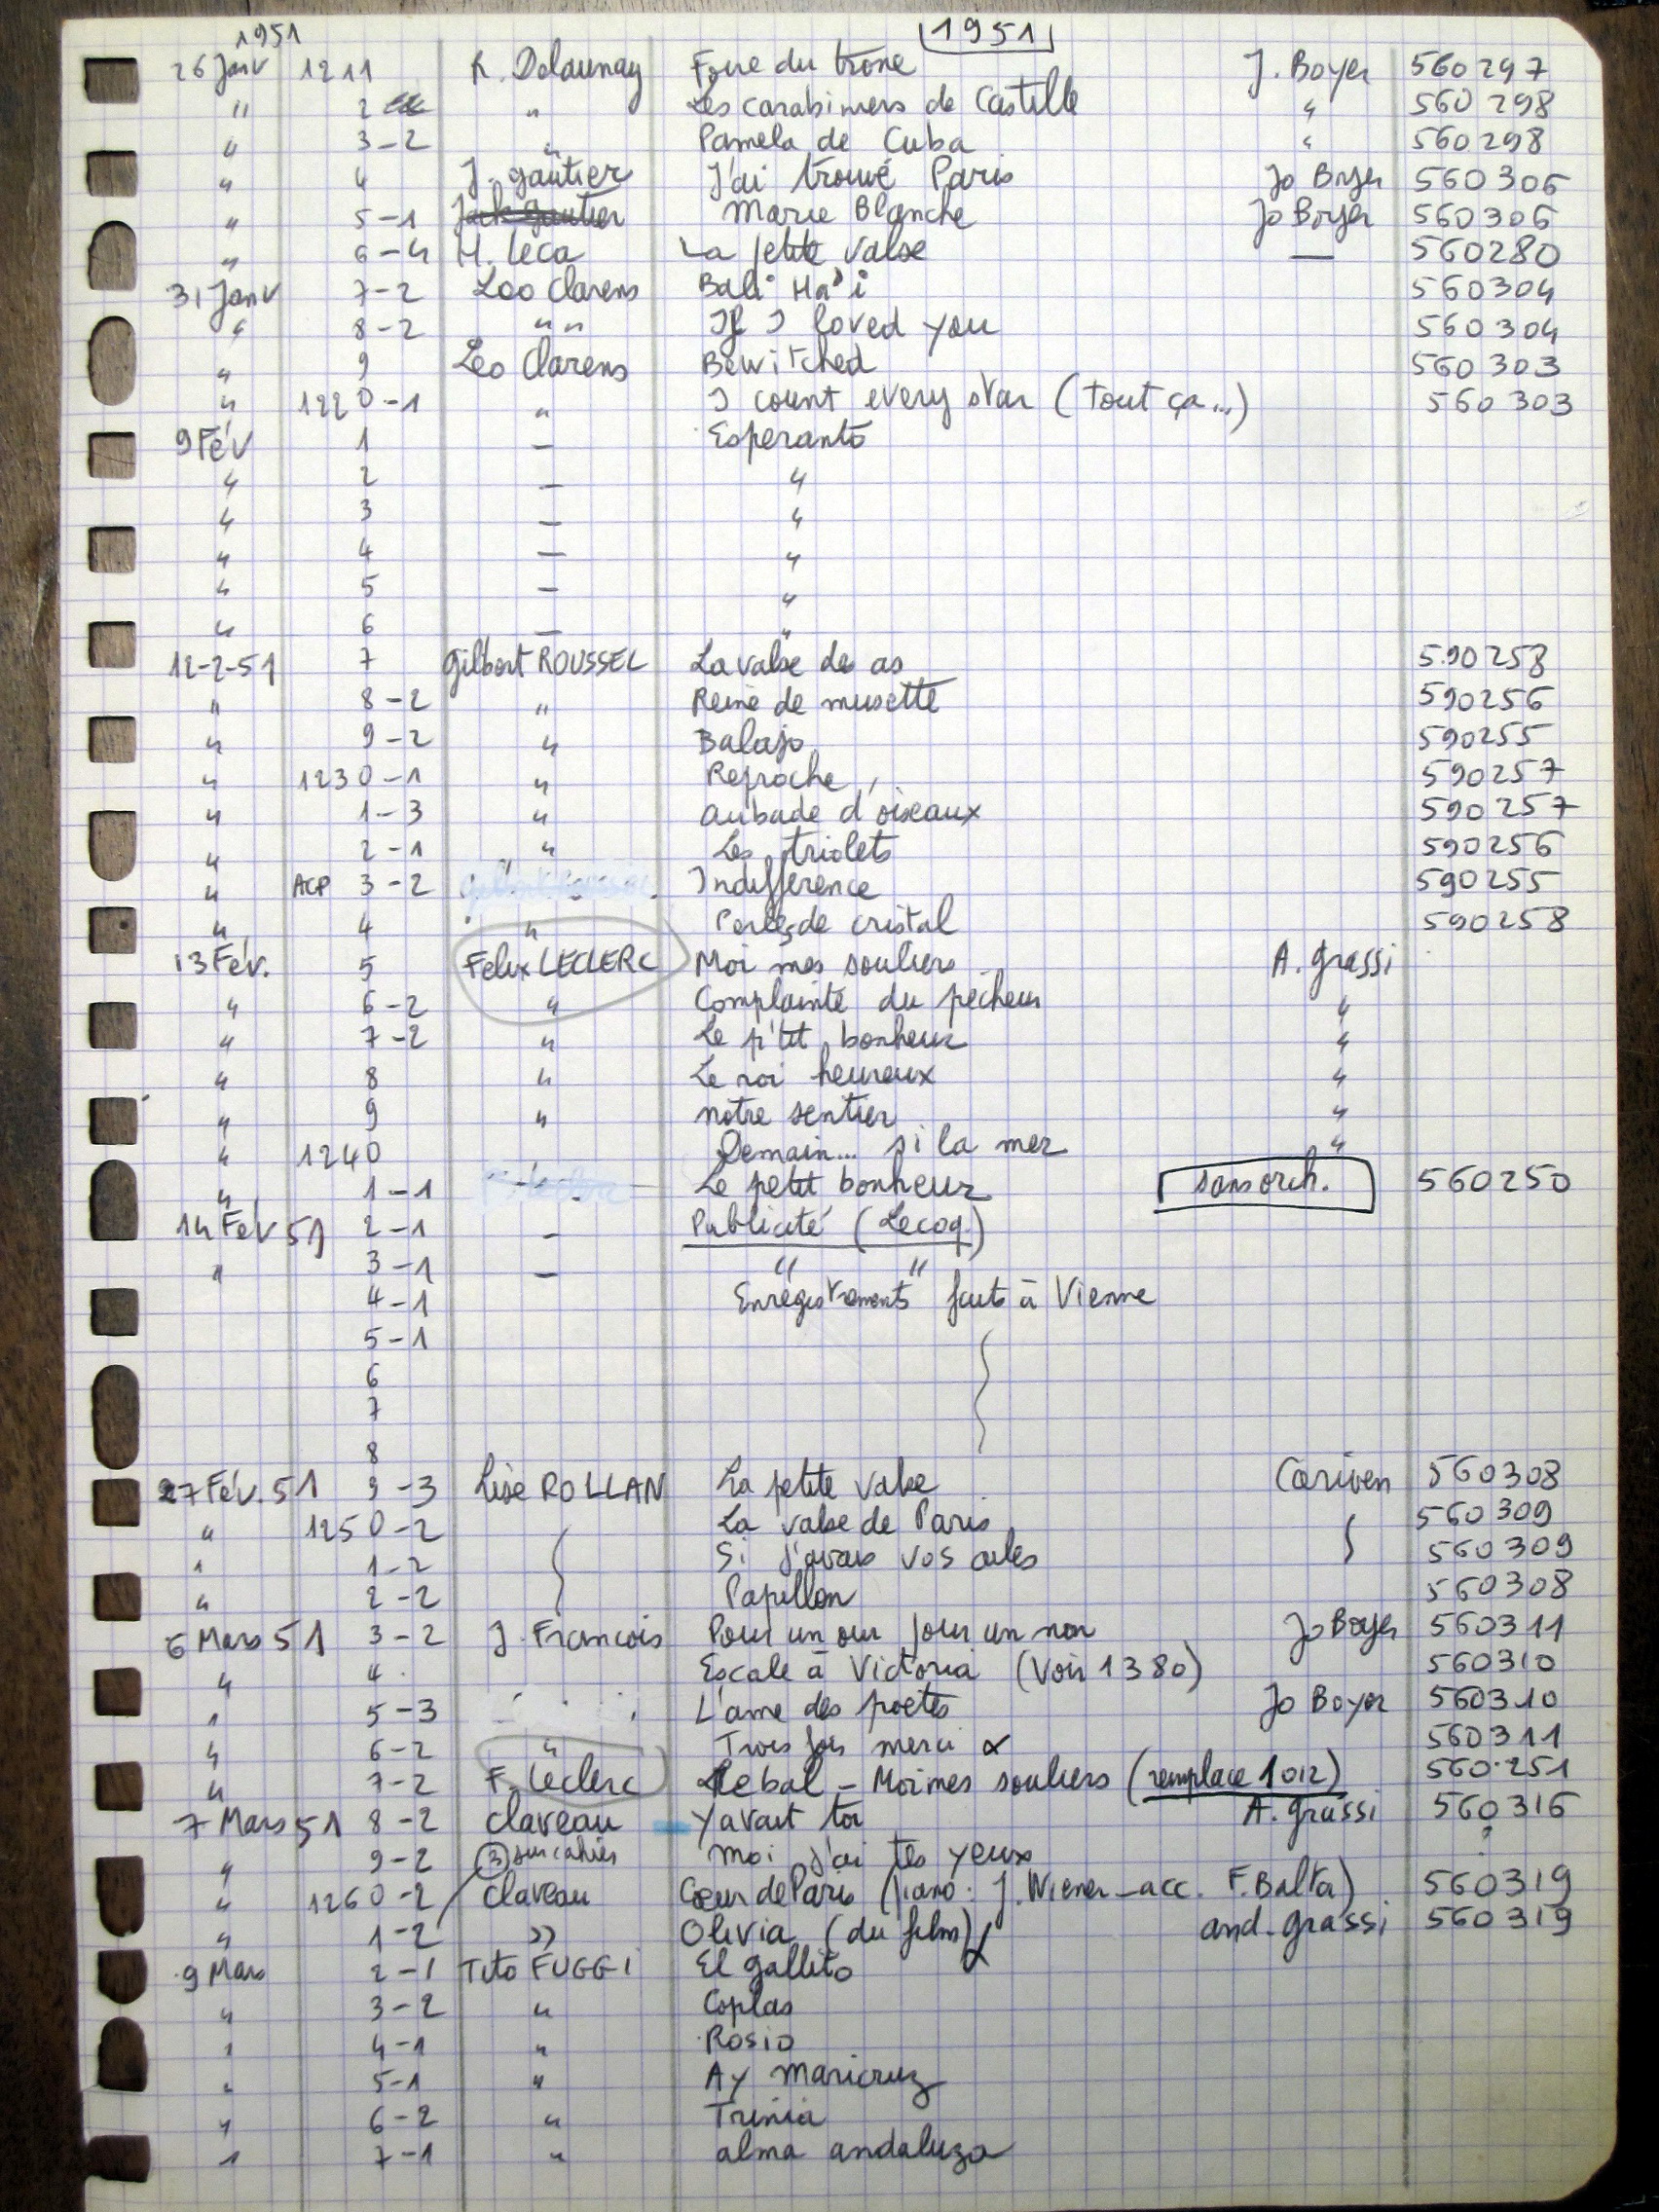 1951 1951
26 Janv 1211 R. Delaunay Foire du trone J. Boyer 560297
" 2 " Les carabiniers de Castille " 560298
" 3-2 " Pamela de Cuba " 560298
" 4 J. gautier J'ai trouvé Paris Jo Boyer 560306
" 5-1 Jack gautier Marie Blanche Jo Boyer 560306
" 6-4 H. Leca La petite valse — 560280
31 Janv 7-2 Loo Clarens Bali Ha'i 560304
" 8-2 " " If I loved you 560304
" 9 Leo Clarens Bewitched 560303
" 1220-1 " I count every star (tout ça...) 560303
9 Fév 1 — Esperanto
" 2 — "
" 3 — "
" 4 — "
" 5 — "
" 6 — "
12-2-51 7 Gilbert ROUSSEL La valse des as 590258
" 8-2 " Reine de musette 590256
" 9-2 " Balajo 590255
" 1230-1 " Reproche 590257
" 1-3 " Aubade d'oiseaux 590257
" 2-1 " Les triolets 590256
" ACP 3-2 " Indifférence 590255
" 4 " Perles de cristal 590258
13 Fév. 5 Félix LECLERC Moi mes souliers A. Grassi
" 6-2 " Complainte du pecheur "
" 7-2 " Le p'tit bonheur "
" 8 " Le roi heureux "
" 9 " notre sentier "
" 1240 Demain... si la mer "
" 1-1 Le petit bonheur sans orch. 560250
14 Fév 51 2-1 — Publicité (Lecoq.)
" 3-1 — " "
4-1 Enregistrements faits à Vienne
5-1
6
7
8
27 Fév. 51 9-3 Lise ROLLAN La petite valse Cariven 560308
" 1250-2 La valse de Paris 560309
" 1-2 Si j'avais vos ailes 560309
" 2-2 Papillon 560308
6 Mars 51 3-2 J. François Pour un oui pour un non Jo Boyer 560311
" 4 Escale à Victoria (Voir 1380) 560310
" 5-3 L'ame des poetes Jo Boyer 560310
" 6-2 " Trois fois merci 560311
" 7-2 F. Leclerc Le bal - Moi mes souliers (remplace 1012) 560.251
7 Mars 51 8-2 Claveau Y avait toi A. Grassi 560316
" 9-2 (3) sur cahier Moi j'ai tes yeux ?
" 1260-2 Claveau Cœur de Paris (piano: J. Wiener - acc. F. Balta) 560319
" 1-2 " Olivia (du film) and. Grassi 560319
9 Mars 2-1 Tito FUGGI El gallito
" 3-2 " Coplas
" 4-1 " Rosio
" 5-1 " Ay Maricruz
" 6-2 " Trinia
" 7-1 " alma andaluza